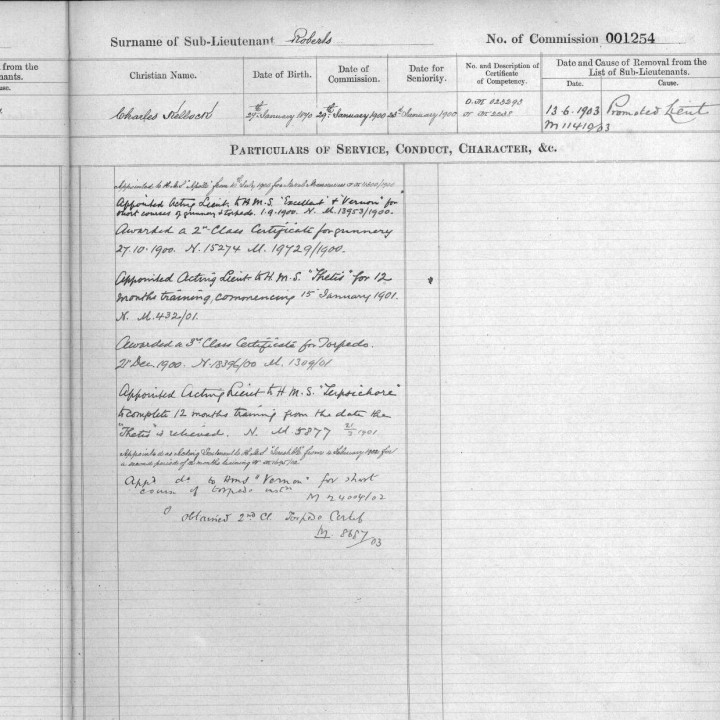 from the
nants.
ause.
Surname of Sub-Lieutenant Roberts No. of Commission 001254
Christian Name. Date of Birth. Date of Commission. Date for Seniority. No. and Description of Certificate of Competency. Date and Cause of Removal from the List of Sub-Lieutenants.
Date. Cause.
Charles Kellock 29th January 1870 29th January 1900 January 1900 13.6.1903 Promoted Lieut
M 11419/03
Particulars of Service, Conduct, Character, &c.
Appointed to H.M.S. "Apollo" from July 1900 for Naval Manoeuvres
Appointed Acting Lieut. to H.M.S. "Excellent" & "Vernon" for
short courses of gunnery & torpedo. 1.9.1900. N. M. 13953/1900.
Awarded a 2nd Class Certificate for gunnery
27.10.1900. N. 15274 M. 19729/1900.
Appointed Acting Lieut to H.M.S. "Thetis" for 12
months training, commencing 15 January 1901.
N. M. 432/01.
Awarded a 3rd Class Certificate for Torpedo.
21 Dec. 1900. N. 18396/00 M. 1309/01
Appointed Acting Lieut to H.M.S. "Terpsichore"
to complete 12 months training from the date the
"Thetis" is relieved. N. M. 5877 21/5 1901
Appointed as Acting Lieutenant to H.M.S. from February 1902 for
a second period of months training
App'd do to HMS "Vernon" for short
course of torpedo instn
M 24004/02
Obtained 2nd Cl. Torpedo Certif
M. 8687/03